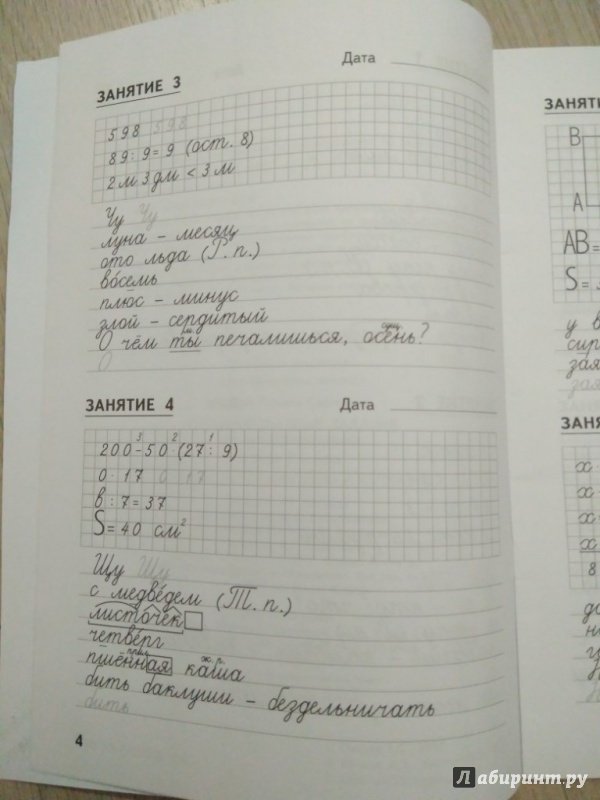 ЗАНЯТИЕ 3 Дата
598 598
89 : 9 = 9 (ост. 8)
2 м 3 дм < 3 м
Чу Чу
луна – месяц
ото льда (Р. п.)
во́семь
плюс – минус
злой – сердитый
м.
сущ.
О чём ты печалишься, осень?
О
ЗАНЯТИЕ 4 Дата
3 2 1
200-50·(27 : 9)
0 · 17 0 17
в : 7 = 37
S = 40 см²
Щу Щу
с медве́дем (Т. п.)
листочек
четве́рг
прил. ж. р.
пшённая каша
бить баклуши – бездельничать
бить
4
ЗАНЯТИ
В
А
АВ=
S =
у в
сир
зая
зая
ЗАНЯ
х
х
х
х
8
до
Лабиринт.ру